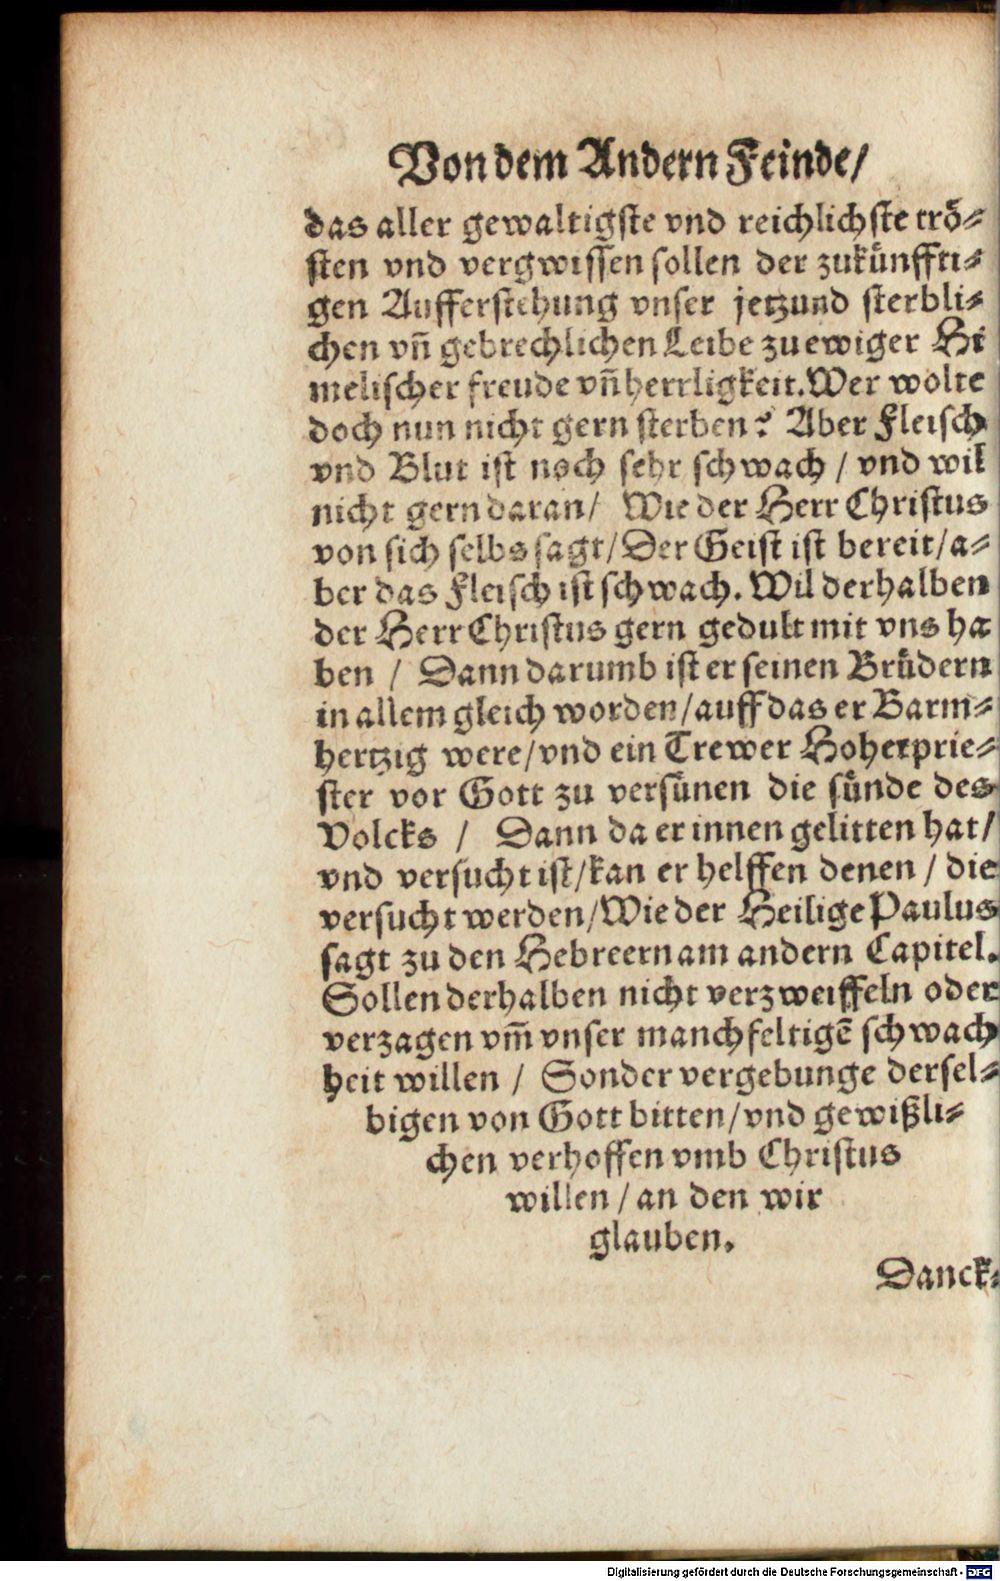 Von dem Andern Feinde/
das aller gewaltigste vnd reichlichste trö⸗
sten vnd vergwissen sollen der zukünffti⸗
gen Aufferstehung vnser jetzund sterbli⸗
chen vñ gebrechlichen Leibe zu ewiger Hi
melischer freude vñ herrligkeit. Wer wolte
doch nun nicht gern sterben? Aber Fleisch
vnd Blut ist noch sehr schwach / vnd wil
nicht gern daran/ Wie der Herr Christus
von sich selbs sagt/Der Geist ist bereit/a⸗
ber das Fleisch ist schwach. Wil derhalben
der Herr Christus gern gedult mit vns ha
ben / Dann darumb ist er seinen Brüdern
in allem gleich worden/auff das er Barm⸗
hertzig were/vnd ein Trewer Hoherprie⸗
ster vor Gott zu versünen die sünde des
Volcks / Dann da er innen gelitten hat/
vnd versucht ist/kan er helffen denen / die
versucht werden/Wie der Heilige Paulus
sagt zu den Hebreern am andern Capitel.
Sollen derhalben nicht verzweiffeln oder
verzagen vm̃ vnser manchfeltigẽ schwach
heit willen / Sonder vergebunge dersel⸗
bigen von Gott bitten/vnd gewißli⸗
chen verhoffen vmb Christus
willen / an den wir
glauben.
Danck⸗
Digitalisierung gefördert durch die Deutsche Forschungsgemeinschaft - DFG